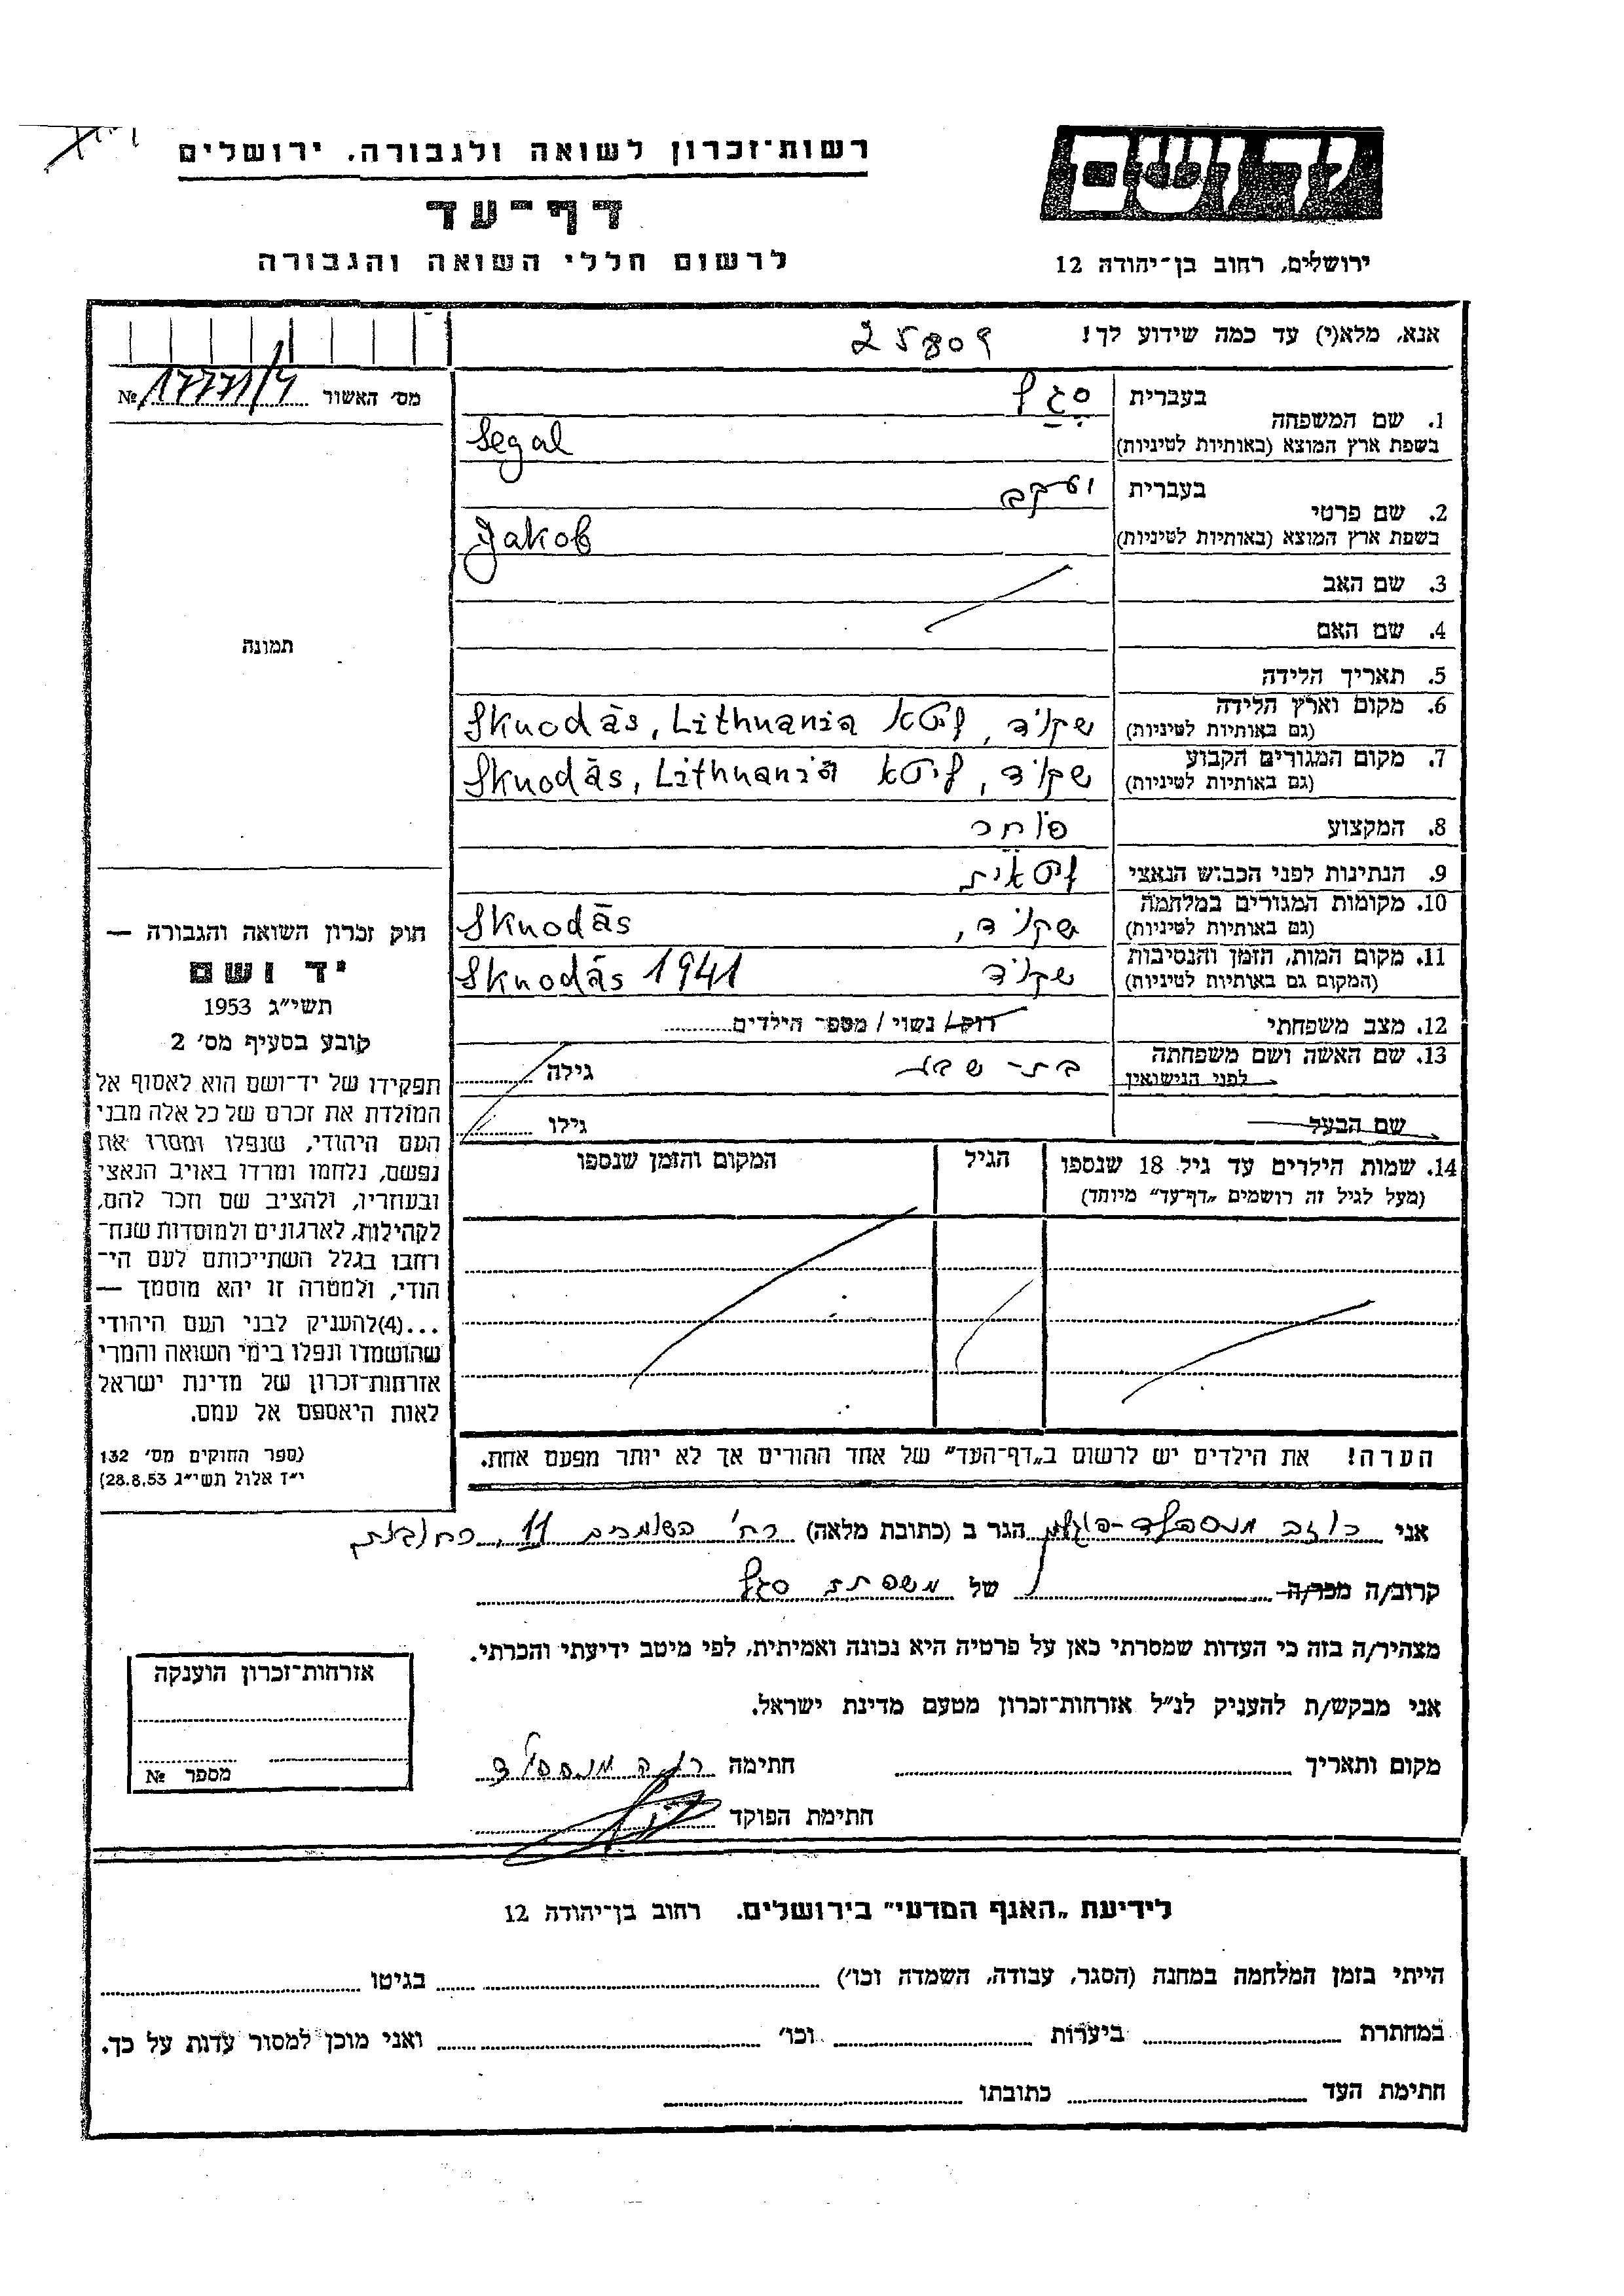 רשות־זכרון לשואה ולגבורה, ירושלים
דף־עד
לרשום חללי השואה והגבורה
יד ושם
ירושלים, רחוב בן־יהודה 12
אנא, מלא(י) עד כמה שידוע לך!
25809
מס׳ האשור № 17771/4
1. שם המשפחה
בעברית סגל
בשפת ארץ המוצא (באותיות לטיניות) Segal
2. שם פרטי
בעברית יעקב
בשפת ארץ המוצא (באותיות לטיניות) Jakob
3. שם האב
4. שם האם
5. תאריך הלידה
6. מקום וארץ הלידה
(גם באותיות לטיניות) שקוד, ליטא Skuodās, Lithuania
7. מקום המגורים הקבוע
(גם באותיות לטיניות) שקוד, ליטא Skuodās, Lithuania
8. המקצוע סוחר
9. הנתינות לפני הכבוש הנאצי ליטאית
10. מקומות המגורים במלחמה
(גם באותיות לטיניות) שקוד, Skuodās
11. מקום המות, הזמן והנסיבות
(המקום גם באותיות לטיניות) שקוד Skuodās 1941
12. מצב משפחתי רוק/ נשוי / מספר הילדים
13. שם האשה ושם משפחתה
לפני הנישואין בת-שבע גילה
שם הבעל גילו
14. שמות הילדים עד גיל 18 שנספו
(מעל לגיל זה רושמים „דף־עד” מיוחד)
הגיל
המקום והזמן שנספו
הערה! את הילדים יש לרשום ב„דף־העד” של אחד ההורים אך לא יותר מפעם אחת.
תמונה
חוק זכרון השואה והגבורה —
יד ושם
תשי״ג 1953
קובע בסעיף מס׳ 2
תפקידו של יד־ושם הוא לאסוף אל
המולדת את זכרם של כל אלה מבני
העם היהודי, שנפלו ומסרו את
נפשם, נלחמו ומרדו באויב הנאצי
ובעוזריו, ולהציב שם וזכר להם,
לקהילות, לארגונים ולמוסדות שנח־
רחבו בגלל השתייכותם לעם הי־
הודי, ולמטרה זו יהא מוסמך —
...(4)להעניק לבני העם היהודי
שהושמדו ונפלו בימי השואה והמרי
אזרחות־זכרון של מדינת ישראל
לאות היאספם אל עמם.
(ספר החוקים מס׳ 132
י״ז אלול תשי״ג 28.8.53)
אני הגר ב (כתובת מלאה) רח׳ 11, רחובות
קרוב/ה מכר/ה של משפחת סגל
מצהיר/ה בזה כי העדות שמסרתי כאן על פרטיה היא נכונה ואמיתית, לפי מיטב ידיעתי והכרתי.
אני מבקש/ת להעניק לנ״ל אזרחות־זכרון מטעם מדינת ישראל.
מקום ותאריך חתימה
חתימת הפוקד
אזרחות־זכרון הוענקה
מספר №
לידיעת „האגף המדעי” בירושלים. רחוב בן־יהודה 12
הייתי בזמן המלחמה במחנה (הסגר, עבודה, השמדה וכו׳) בגיטו
במחתרת ביערות וכו׳ ואני מוכן למסור עדות על כך.
חתימת העד כתובתו